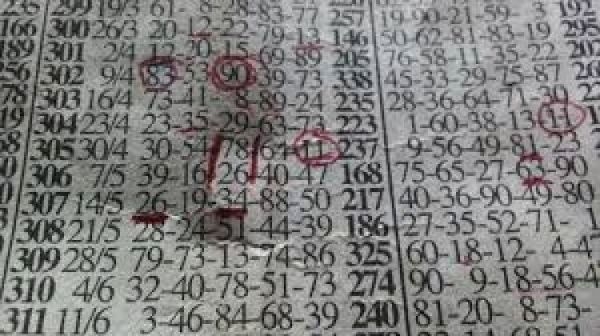 235 299 19/3 61- 8-28-83-77 257 19-90-21-59- 3 192
166 300 26/3 20-12-22-79-13 146 50-62-81-83-19 295
189 301 2/4 12-20-15-69-89 205 76-58-11-35-22 202
256 302 9/4 83-53-90-39-73 338 45-33-29-75-87
78 303 16/4 73-41- 8-89-24 235 28-36-64-71-30
19 304 23/4 23-35-29-63-73 223 1-60-38-13-11
305 30/4 30-54-78-64-11 237 9-56-49-81-23
306 7/5 39-16-26-40-47 168 75-65-27-63-90
307 14/5 26-19-34-88-50 217 40-36-90-49-80
308 21/5 28-24-51-44-39 186 27-35-52-71- 1
309 28/5 79-73-13-74-86 325 60-18-12- 4-4
310 4/6 32-40-78-51-73 274 90- 9-18-56-4
311 11/6 3-46-84-68-39 240 81-20- 8-73-